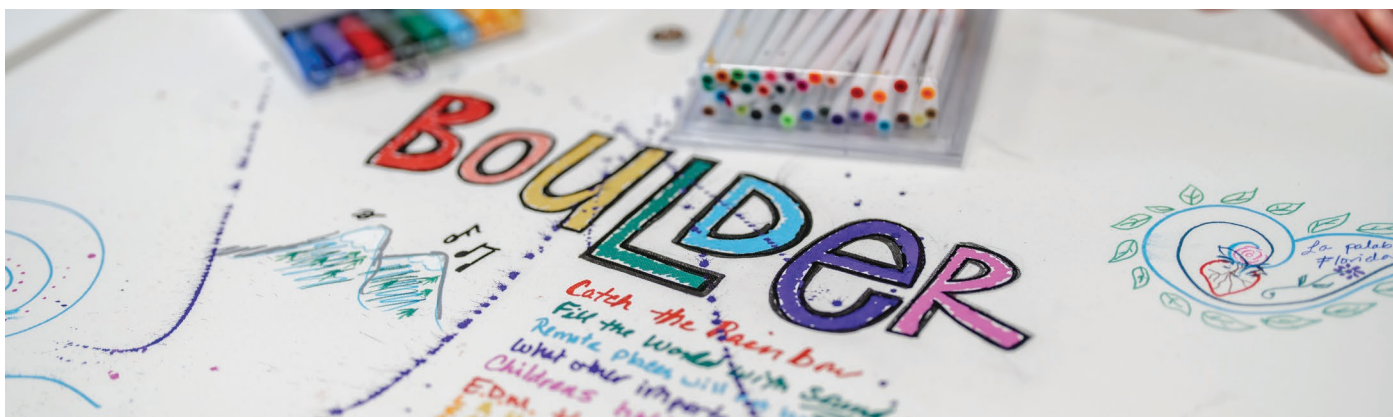 BOULDER
Catch the Rainbow
Fill the World with Sound
Remote places will
What other import
Childrens
E.D.M.
La palab
Florida